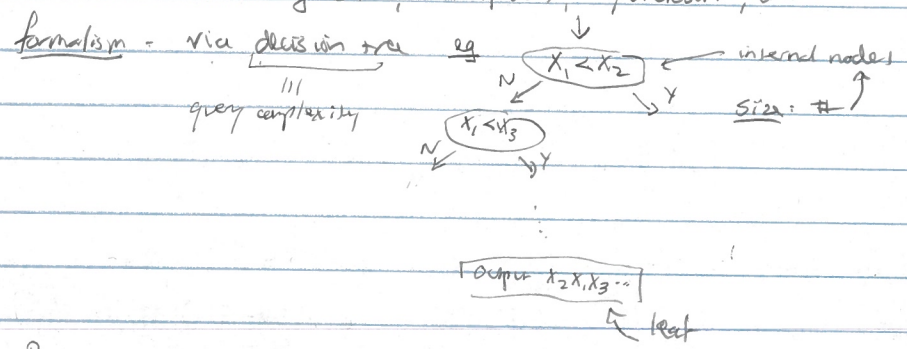 formalism - via decision tree eg X₁ < X₂ ← internal nodes
N Y size: #
||| query complexity
X₁ < X₃
N Y
Output X₂X₁X₃...
leaf